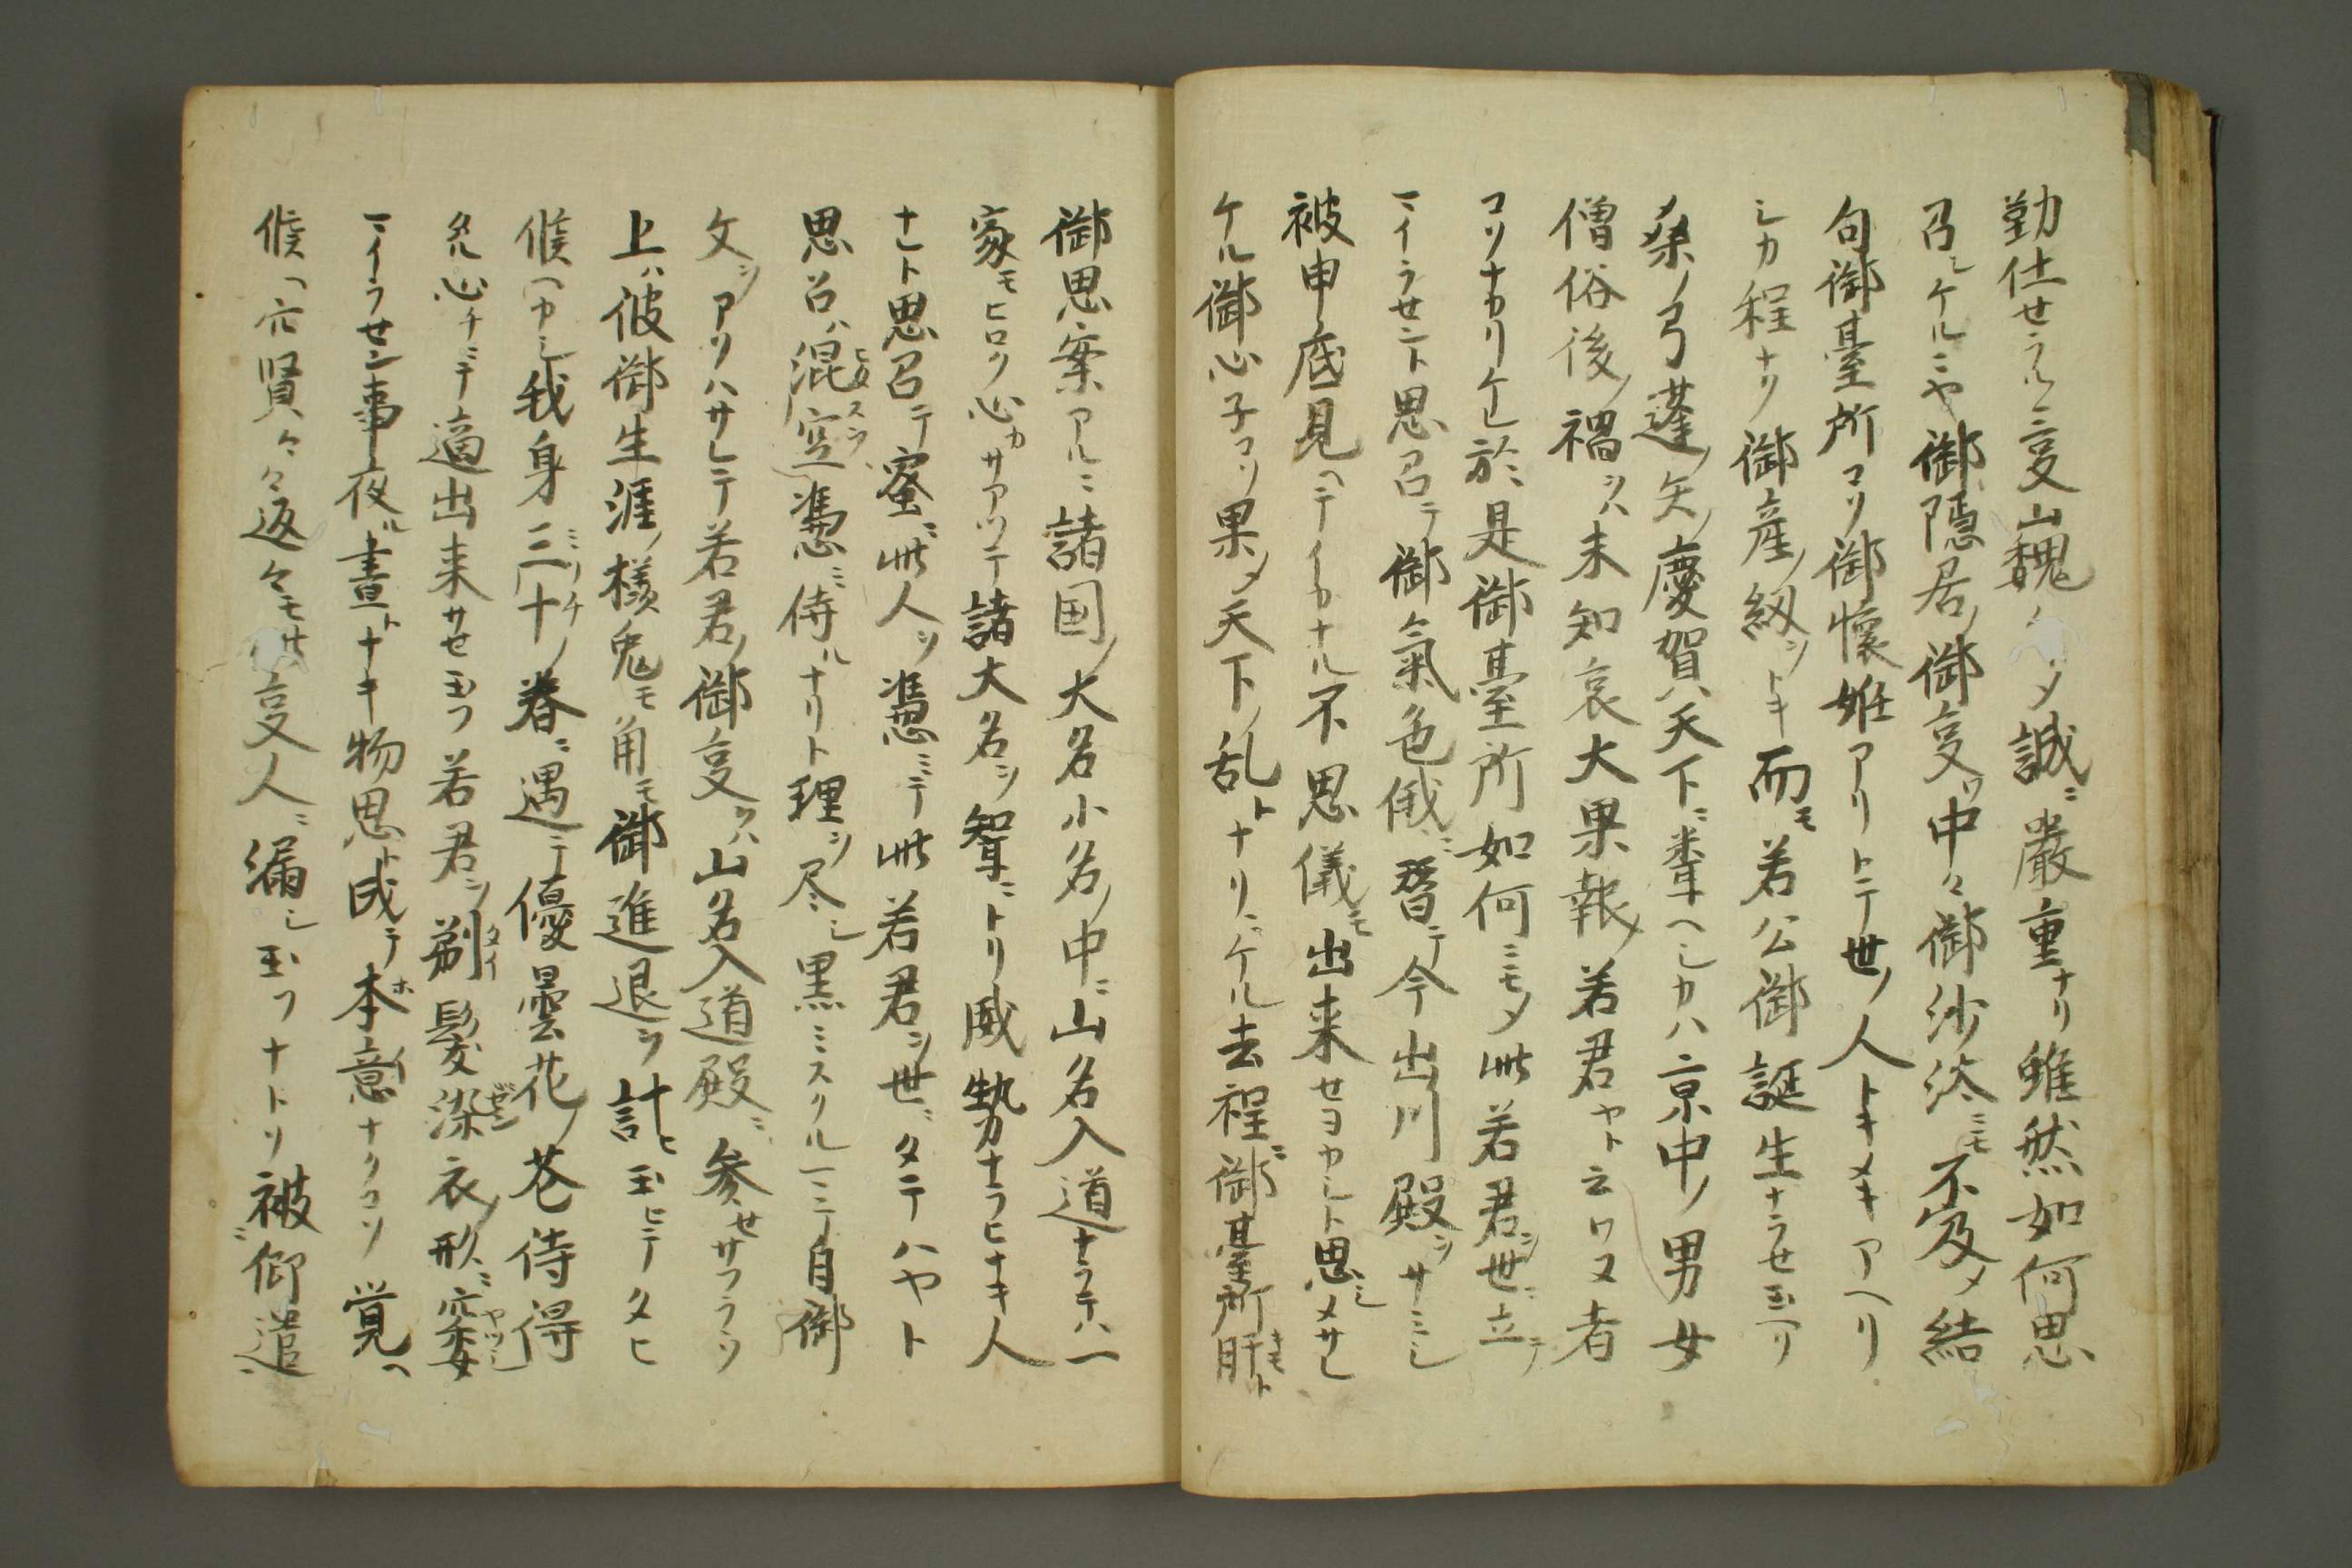 勤仕せラルヽ叓山魏〱メ誠ニ嚴重ナリ雖然如何思
召シケルニヤ御隱居ノ御叓ヲ中々御沙汰ニモ不及メ結
句御臺所コソ御懷妊アリトテ世ノ人トキメキアヘリ
シカ程ナク御産ノ紐ヲトキ而モ若公御誕生ナラせ玉ヘリ
桑ノ弓蓬ノ矢ノ慶賀ハ天下ニ聳ヘシカハ京中ノ男女
僧俗後ノ禍ヲハ未知哀大果報ノ若君ヤト云ワヌ者
コソナカリケレ於是御臺所如何ニモメ此若君ヲ世ニ立テ
マイラせント思召テ御氣色俄ニ替テ今出川殿ヲサミシ
被申底見ヘテイカナル不思儀モ出来セヨカシト思シメサレ
ケル御心子コソ果メ天下ノ乱トナリニケル去程ニ御臺所肝キモト
御思案アルニ諸国ノ大名小名ノ中ニ山名入道ナラテハ一
家モヒロク心カサアツテ諸大名ヲ聟ニトリ威勢ナラヒナキ人
ナレト思召テ蜜ニ此人ヲ憑ミテ此若君ヲ世ニタテハヤト
思召ハ混ヒタ空スラ憑ミ侍ルナリト理ヲ尽シ黒ミスクルーニ自御
文ヲアソハサレテ若君ノ御叓ヲハ山名入道殿ニ参せサフラウ
上ハ彼御生涯ノ様兎モ角モ御進退ヲ計ヒ玉ヒテタヒ
候ヘカシ我身三ミソチ十ノ春ニ遇テ優曇花ノ花待得
タル心チニテ適出来サせ玉フ若君ヲ剃タイ髮染せン衣ノ形ニ窶ヤツシ
マイラせン事夜ル晝トナキ物思ト成テ本ホ意イナクコソ覚ヘ
候ヘ穴賢々々返々モ叓人ニ漏シ玉フナトソ被御遣